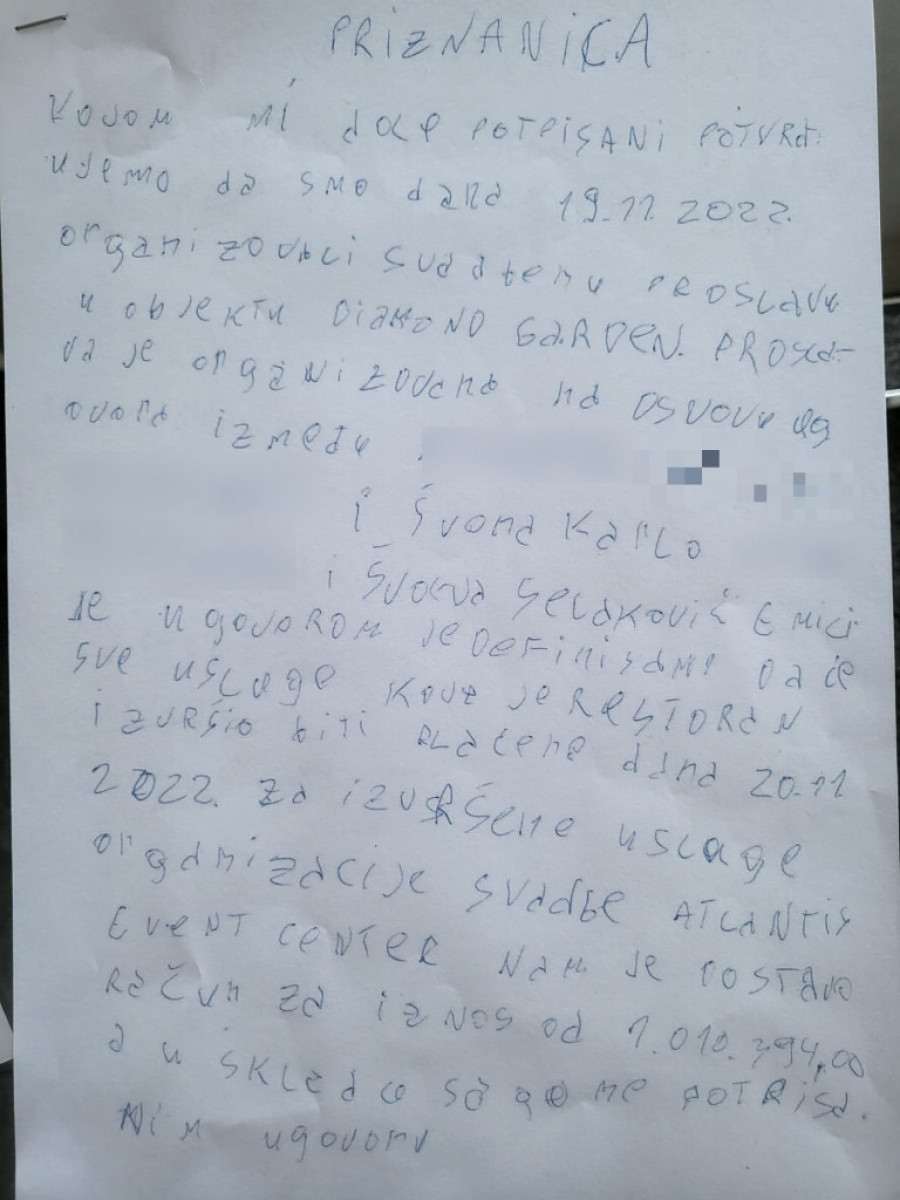 PRIZNANICA
Kojom mi dole potpisani potvrđ-
ujemo da smo dana 19.11.2022.
organizovali svadbenu proslavu
u objektu Diamond Garden. Prosla-
va je organizovana na osnovu ug
ovora između
i Švona Karlo
i Selaković Emici
je ugovorom je definisano da će
sve usluge koje je restoran
izvršio biti plaćene dana 20.11
2022. za izvršene usluge
organizacije svadbe Atlantis
Event center nam je dostavio
račun za iznos od 1.010.394,00
a u skladu sa gore potpisa-
nim ugovoru